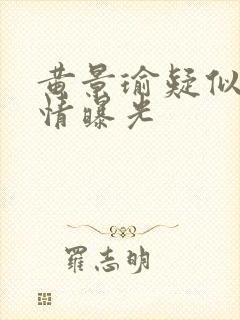 黄景瑜疑似
情曝光
罗志明